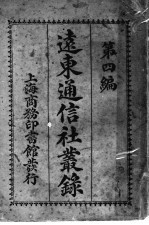 第四編
遠東通信社叢錄
上海商務印書館發行